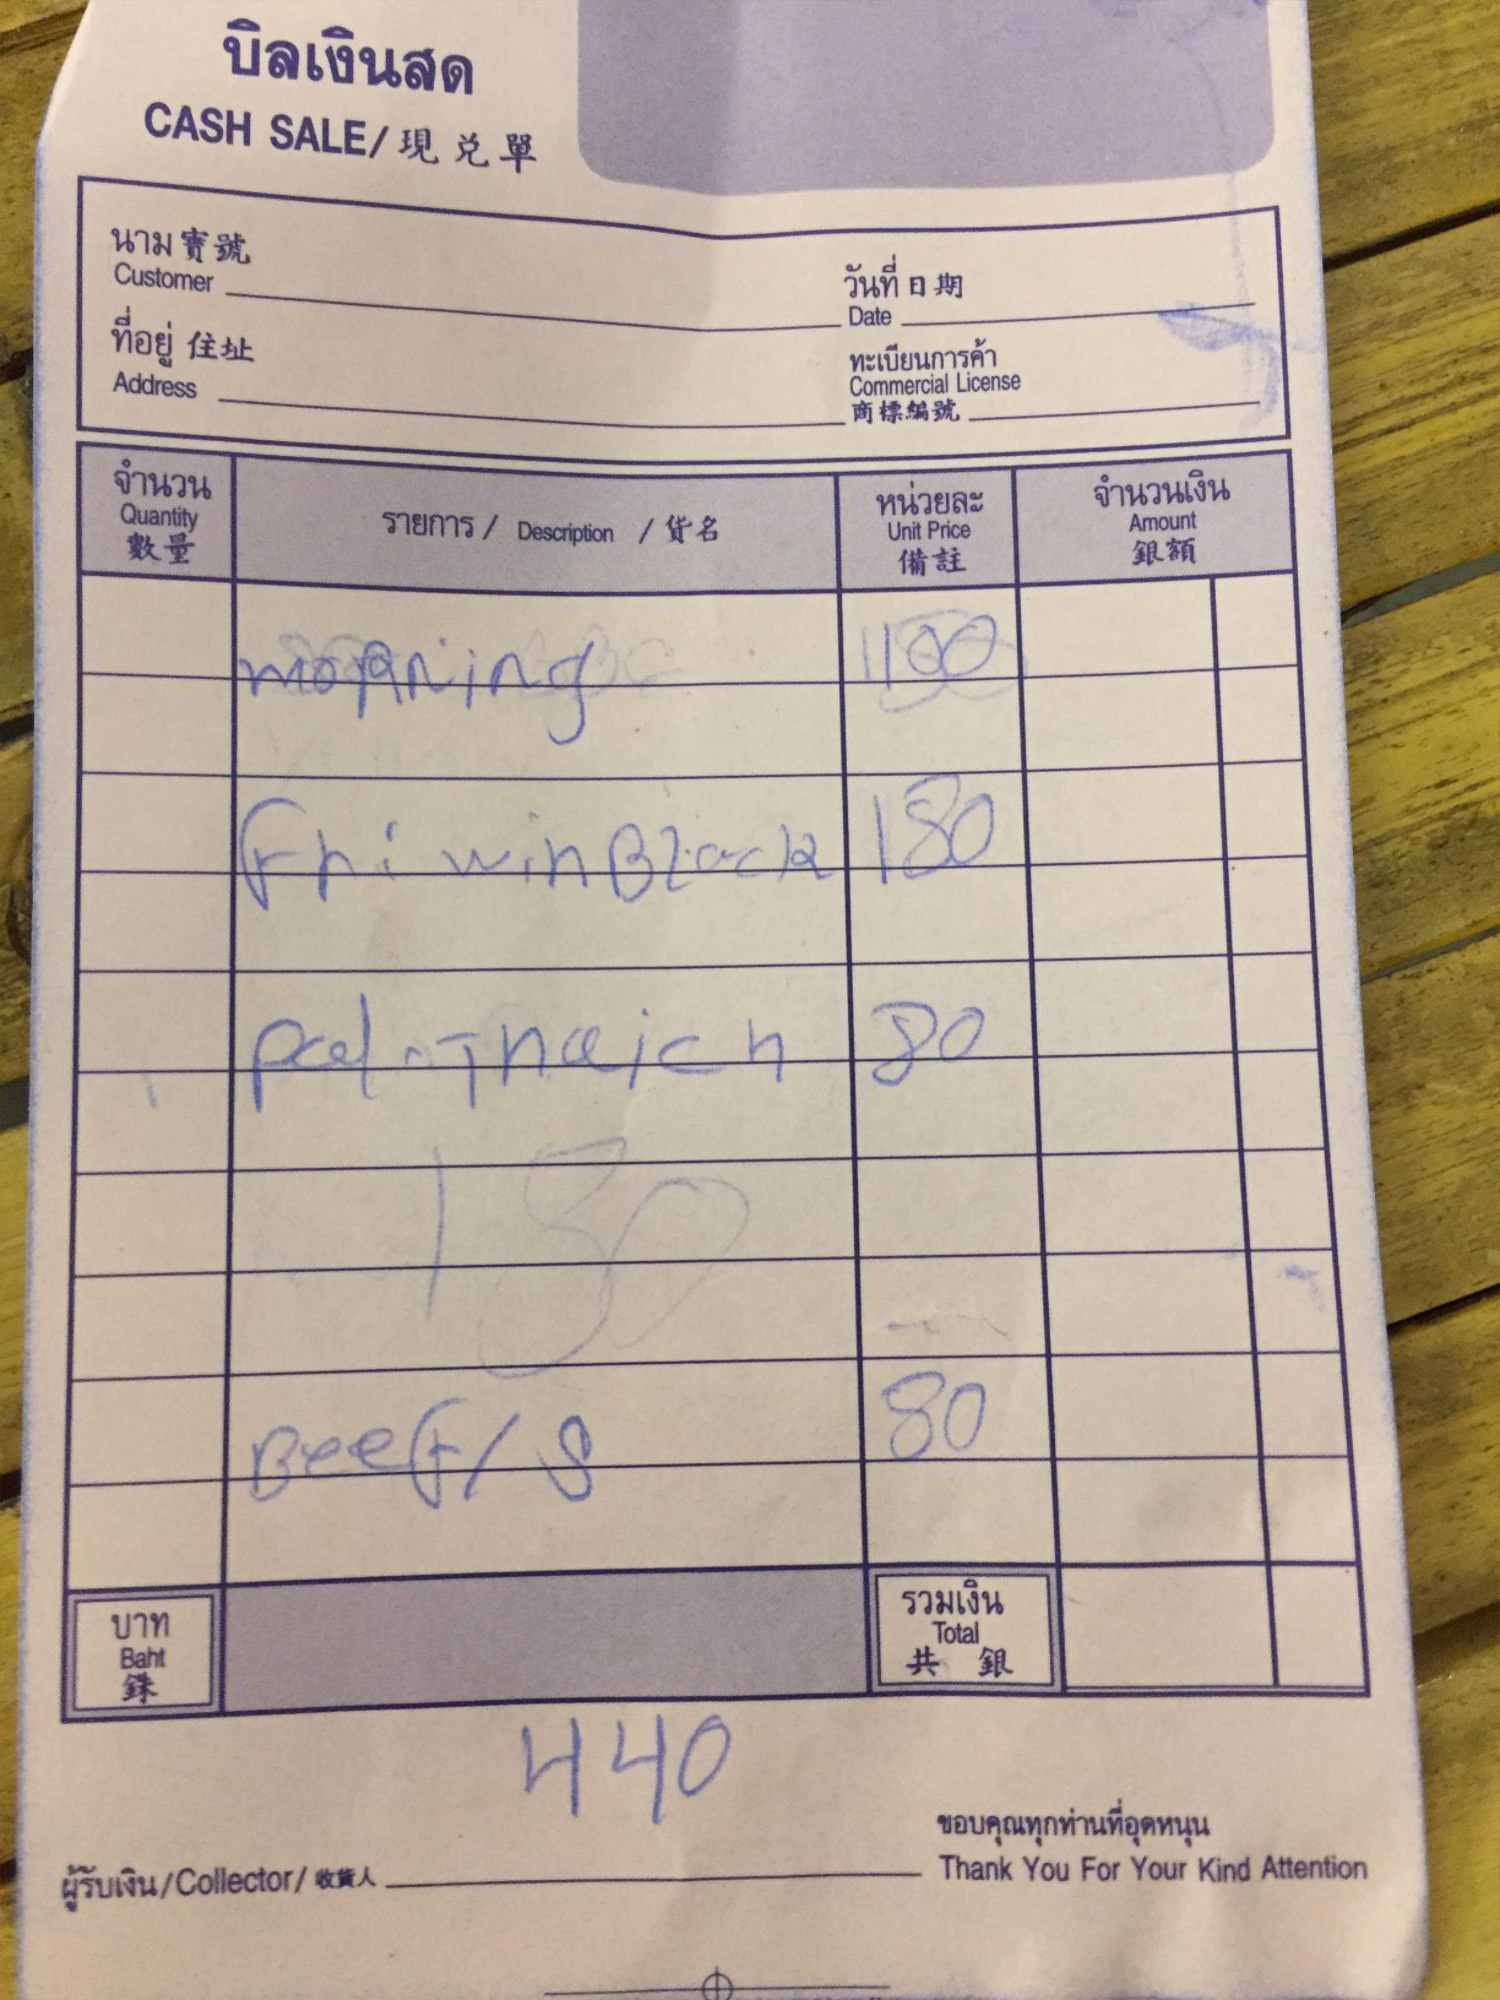 บิลเงินสด
CASH SALE/現兑單
นาม 寶號
Customer
วันที่ 日期
Date
ที่อยู่ 住址
Address
ทะเบียนการค้า
Commercial License
商標編號
จำนวน
Quantity
數量
รายการ / Description / 貨名
หน่วยละ
Unit Price
備註
จำนวนเงิน
Amount
銀額
morning 100
win Black 180
80
180
Beef/S 80
บาท
Baht
銖
รวมเงิน
Total
共銀
440
ขอบคุณทุกท่านที่อุดหนุน
ผู้รับเงิน/Collector/收貨人
Thank You For Your Kind Attention